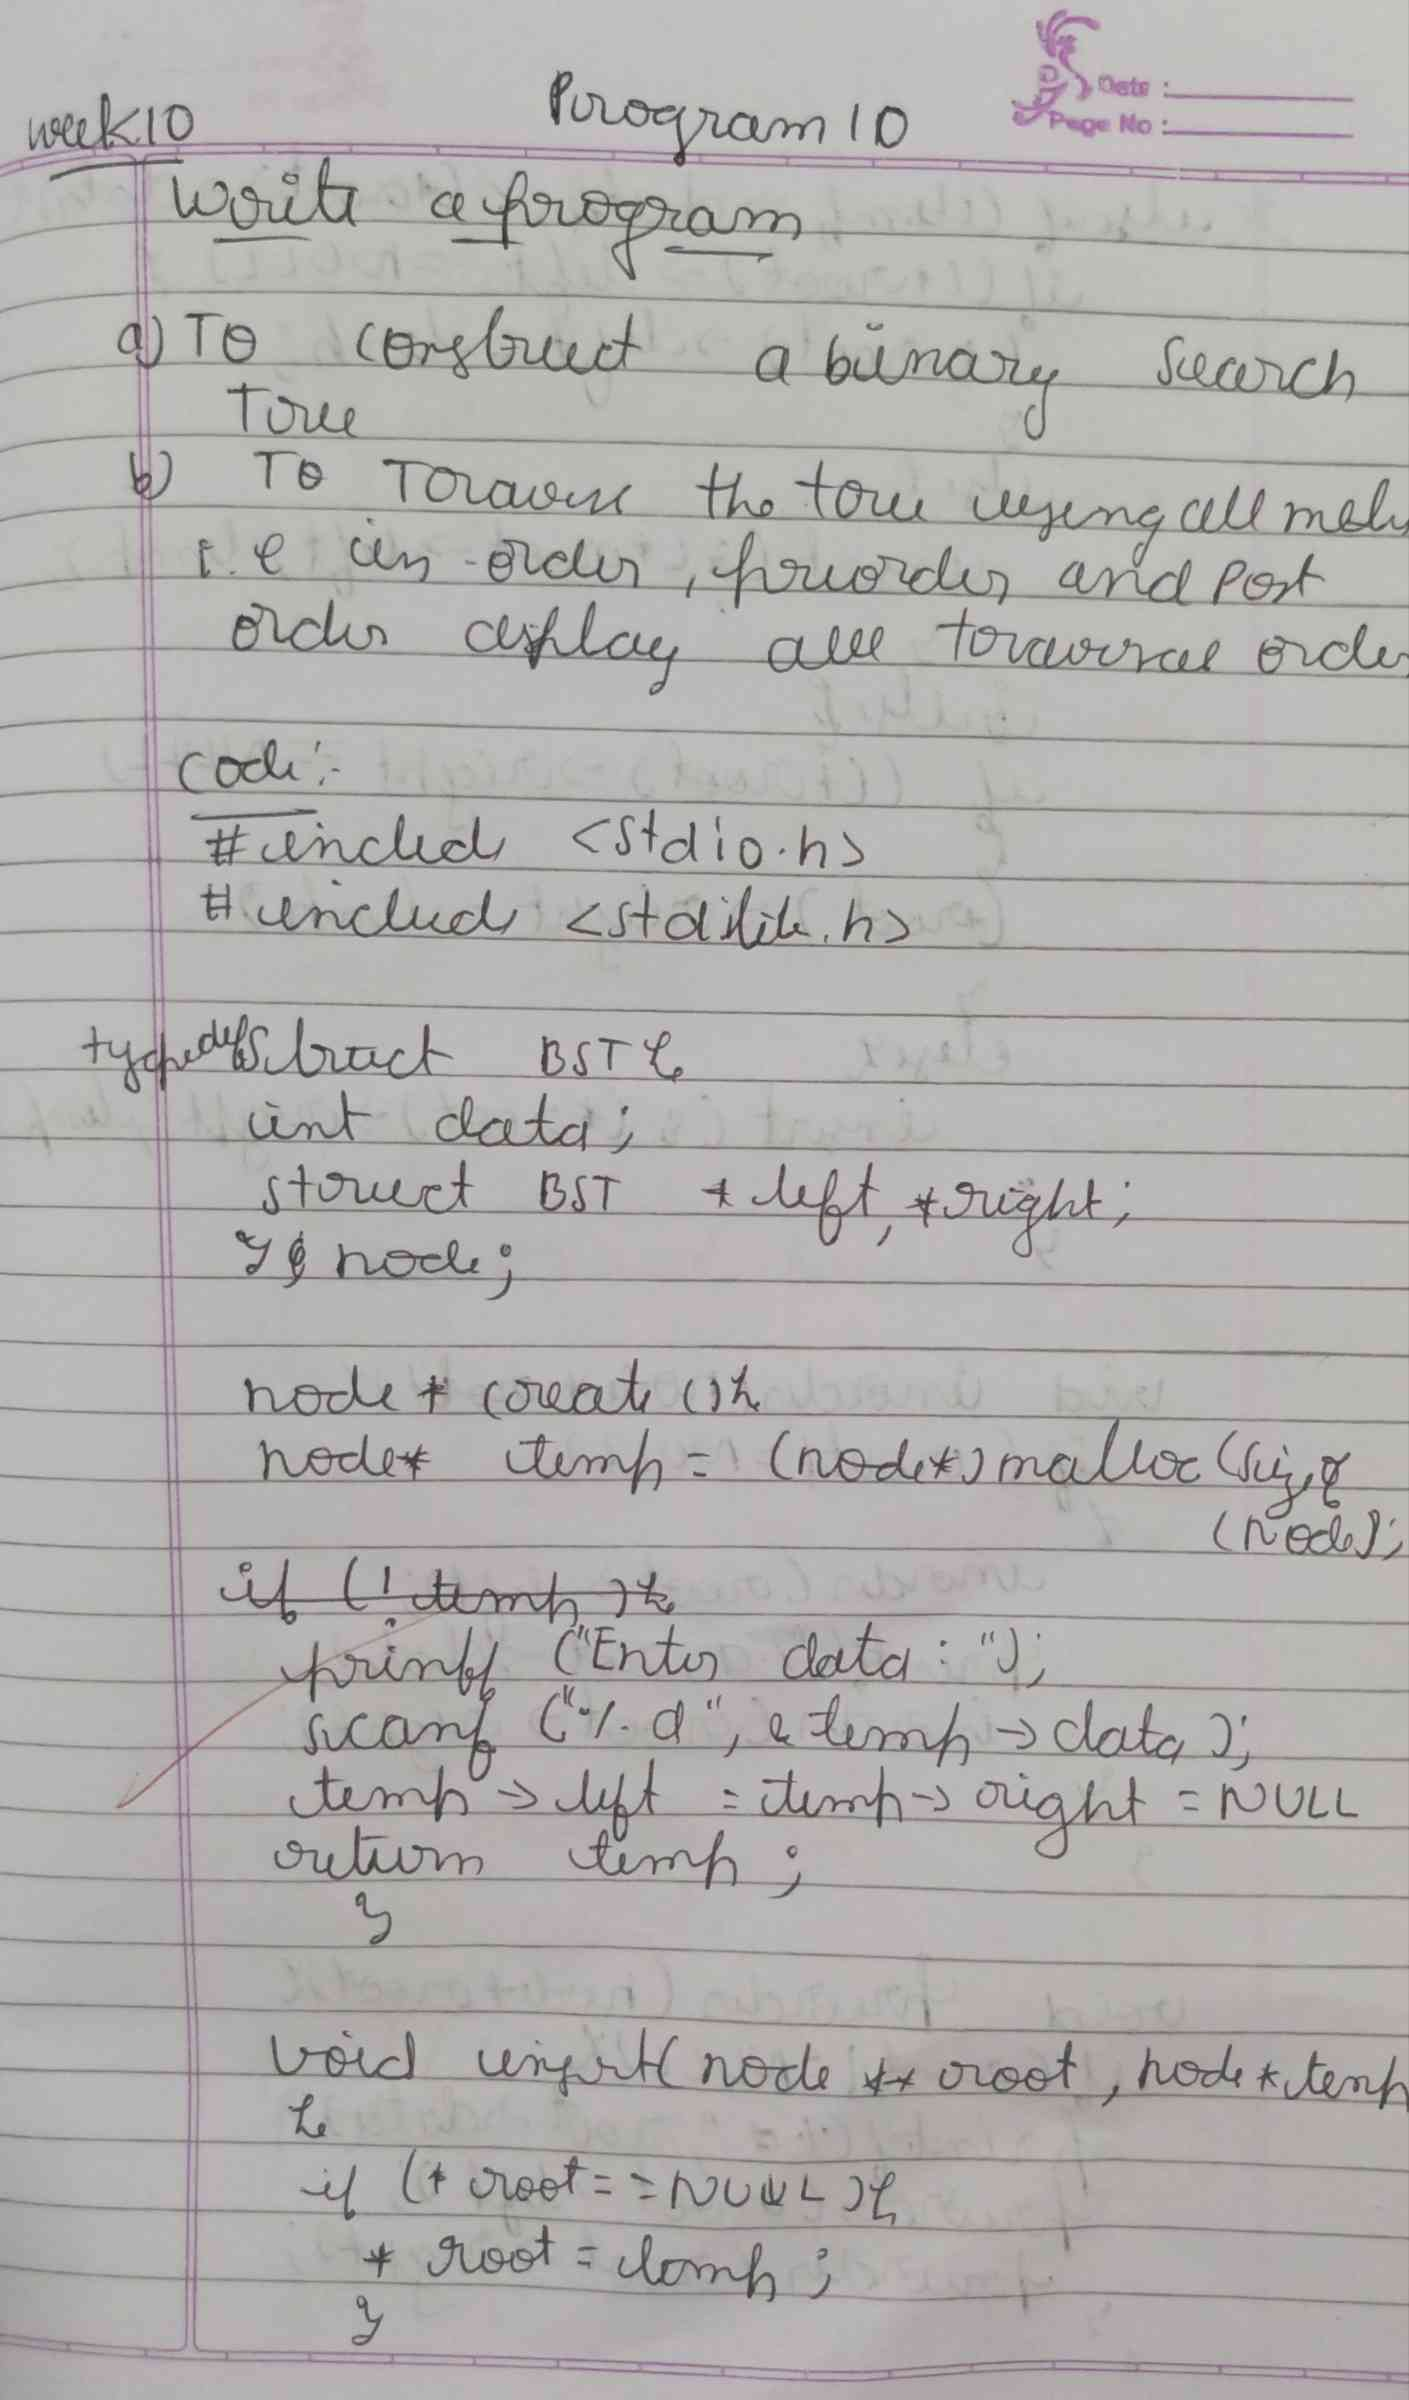 Date :
Page No :
week10
Program 10
Write a program
a) To construct a binary search
Tree
b) To Traverse the tree using all
i.e in-order, preorder and post
order display all traversal order
code:-
#include <stdio.h>
#include <stdlib.h>
typedef struct BST {
int data;
struct BST *left, *right;
} node;
node * create () {
node* temp = (node*) malloc (sizeof
(node);
if (! temp) {
printf ("Enter data : ");
scanf ("%d", & temp -> data);
temp -> left = temp -> right = NULL
return temp ;
}
void insert( node ** root, node * temp
{
if (* root == NULL) {
* root = temp ;
}